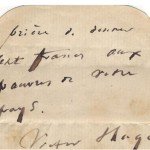 Prière de donner
cent francs aux
pauvres de votre
pays.
Victor Hugo